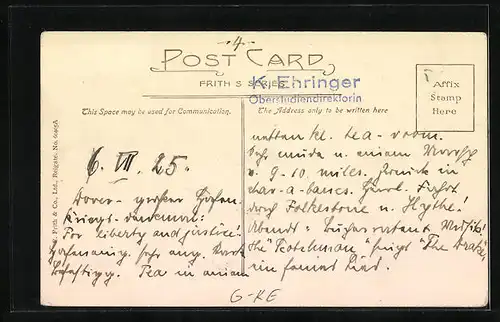 4
POST CARD
FRITH'S SERIES.
K. Ehringer
Oberstudiendirektorin
This Space may be used for Communication.
The Address only to be written here
Affix
Stamp
Here
F. Frith & Co., Ltd., Reigate. No.
6. VII. 25.
Dover - großer Hafen.
Kriegs-denkmal:
For liberty and justice!
Tea in einem
netten kl. tea-room.
Sehr müde n. einem
v. 9-10 miles. Zurück in
char-a-bancs. Fahrt
durch Folkestone u. Hythe!
Abends:
the "Scotchman" singt "The Drake",
ein Lied.
G-KE